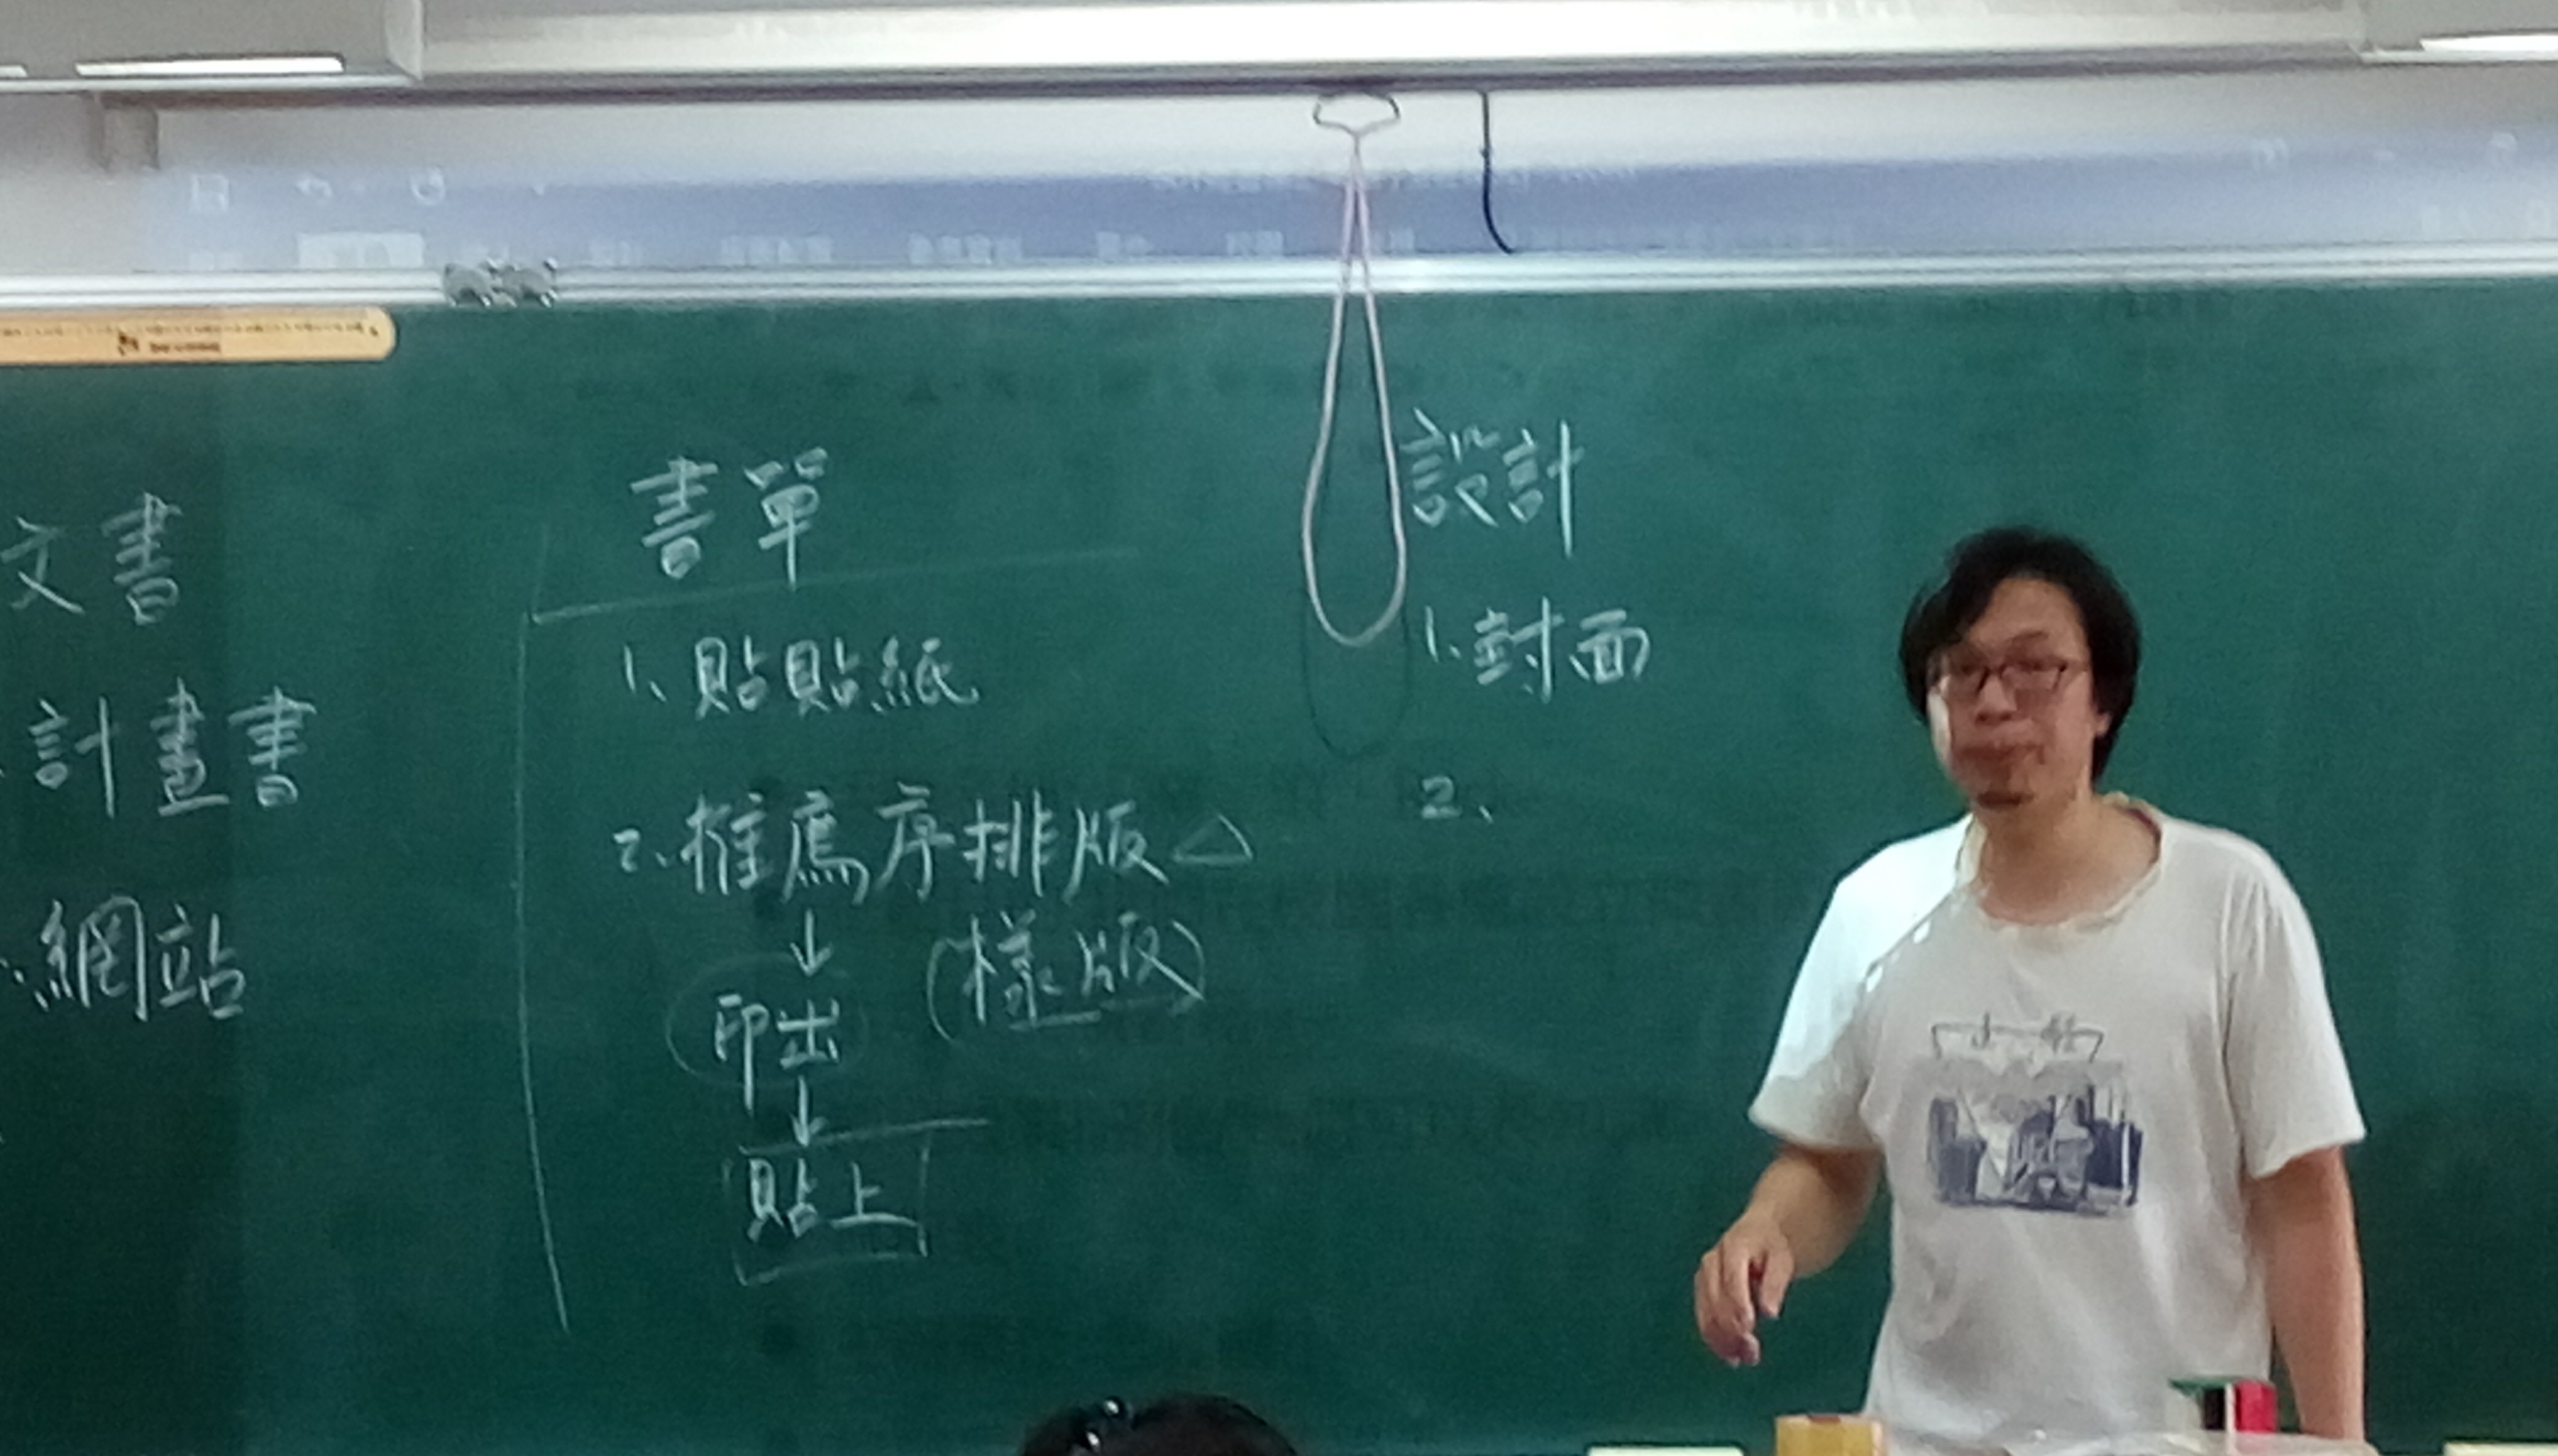 文書
計畫書
網站
書單
1、貼貼紙
2、推薦序排版△
↓
(樣版)
印出
↓
貼上
設計
1、封面
2、